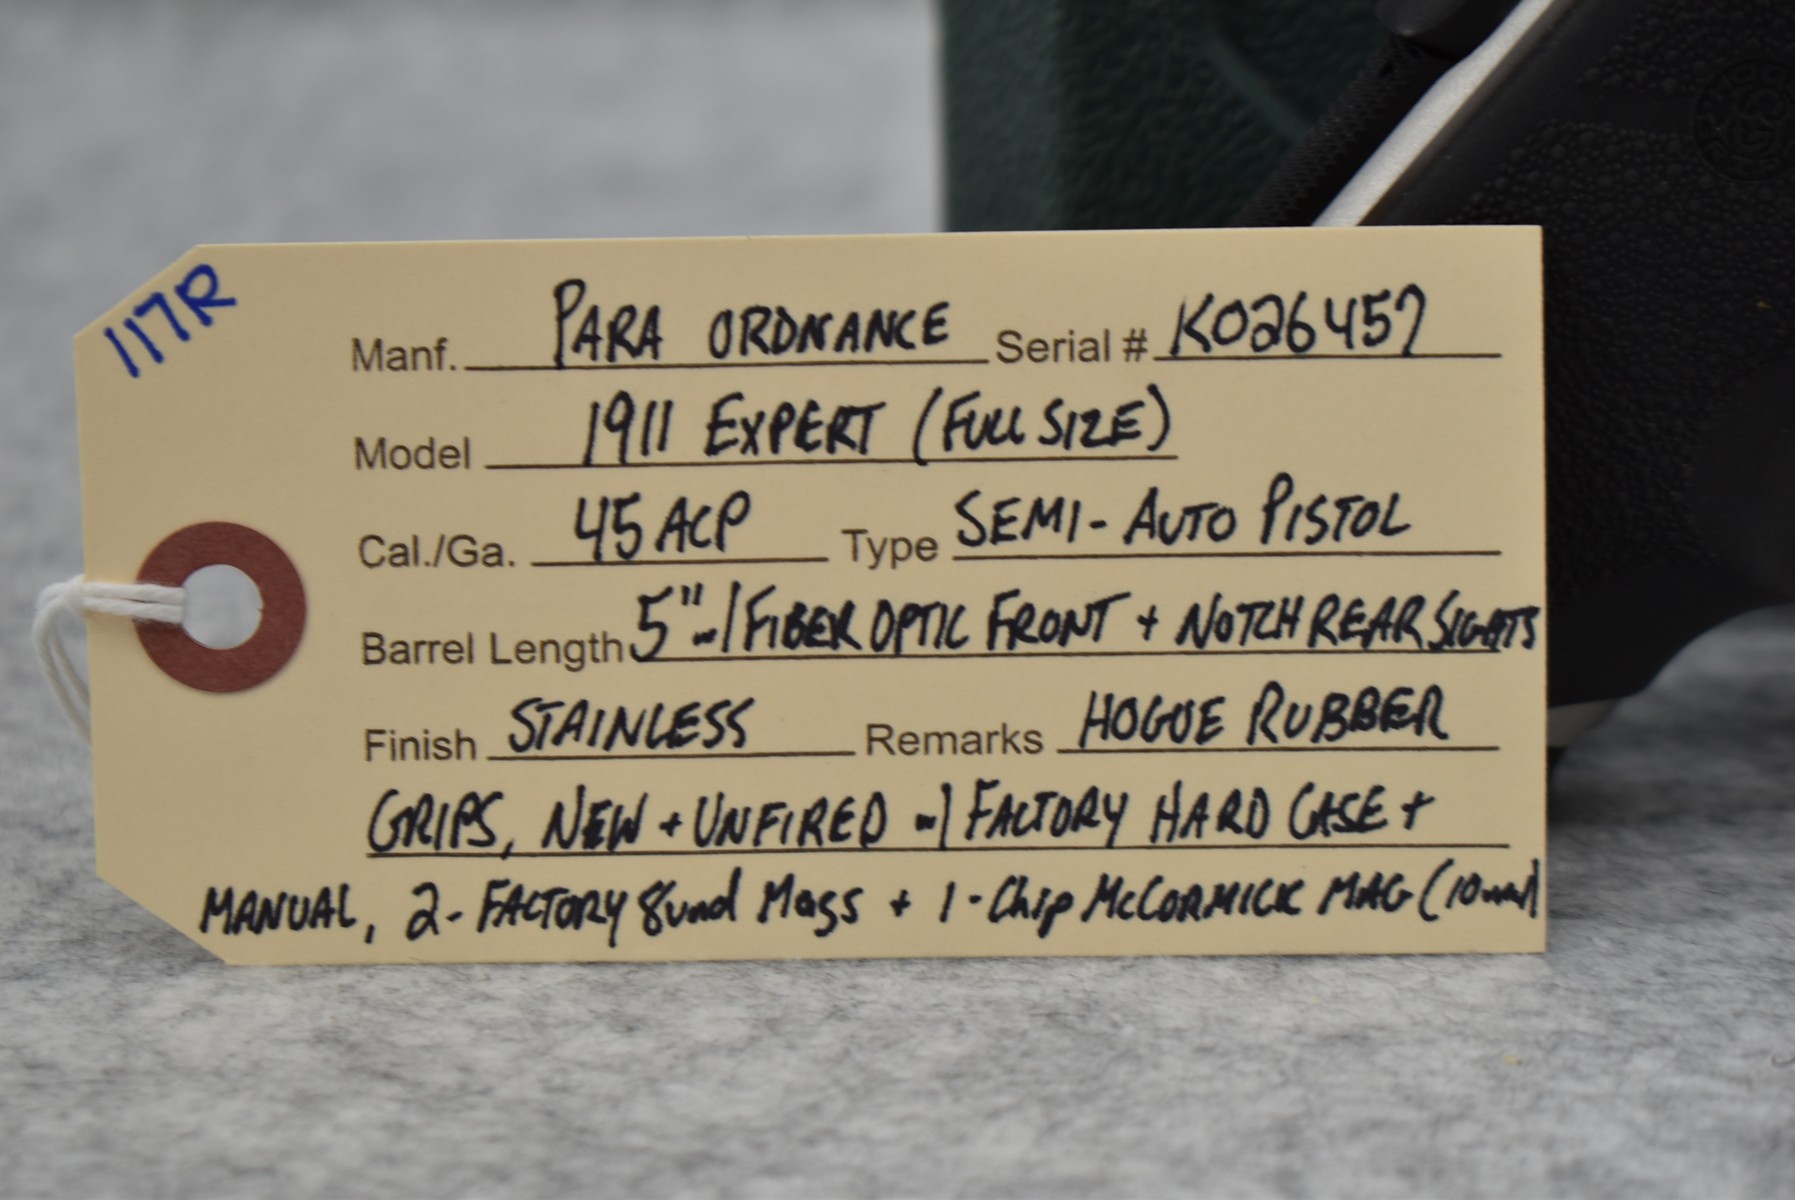 117R
Manf. PARA ORDNANCE Serial # K026457
Model 1911 EXPERT (FULL SIZE)
Cal./Ga. 45 ACP Type SEMI-AUTO PISTOL
Barrel Length 5" w/ FIBER OPTIC FRONT + NOTCH REAR SIGHTS
Finish STAINLESS Remarks HOGUE RUBBER
GRIPS, NEW + UNFIRED w/ FACTORY HARD CASE +
MANUAL, 2- FACTORY 8rnd Mags + 1-Chip McCORMICK MAG (10rnd)